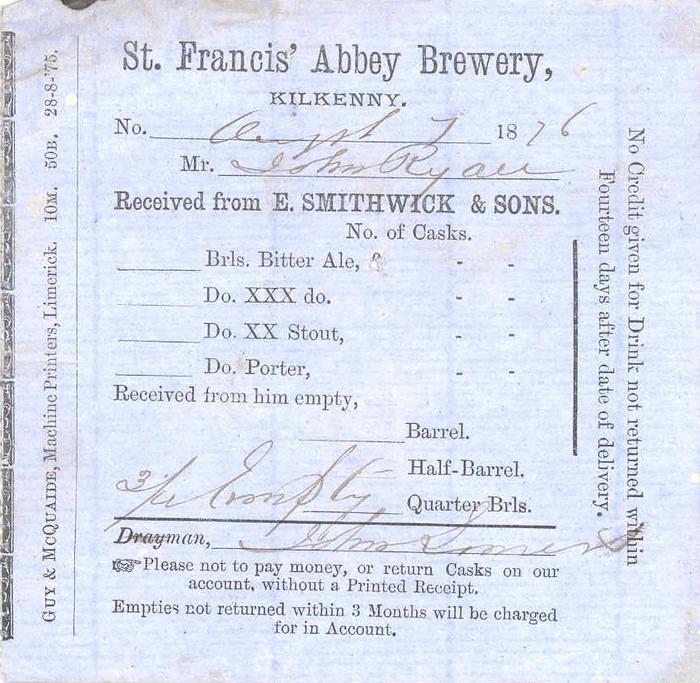 St. Francis' Abbey Brewery,
KILKENNY.
No. August 7 1876
Mr. John Ryan
Received from E. SMITHWICK & SONS.
No. of Casks.
Brls. Bitter Ale, - -
Do. XXX do. - -
Do. XX Stout, - -
Do. Porter, - -
Received from him empty,
Barrel.
Half-Barrel.
3/4 Empty Quarter Brls.
Drayman, John
☞Please not to pay money, or return Casks on our
account, without a Printed Receipt.
Empties not returned within 3 Months will be charged
for in Account.
No Credit given for Drink not returned within
Fourteen days after date of delivery.
GUY & MCQUAIDE, Machine Printers, Limerick. 10M. 50B. 28-8-'75.